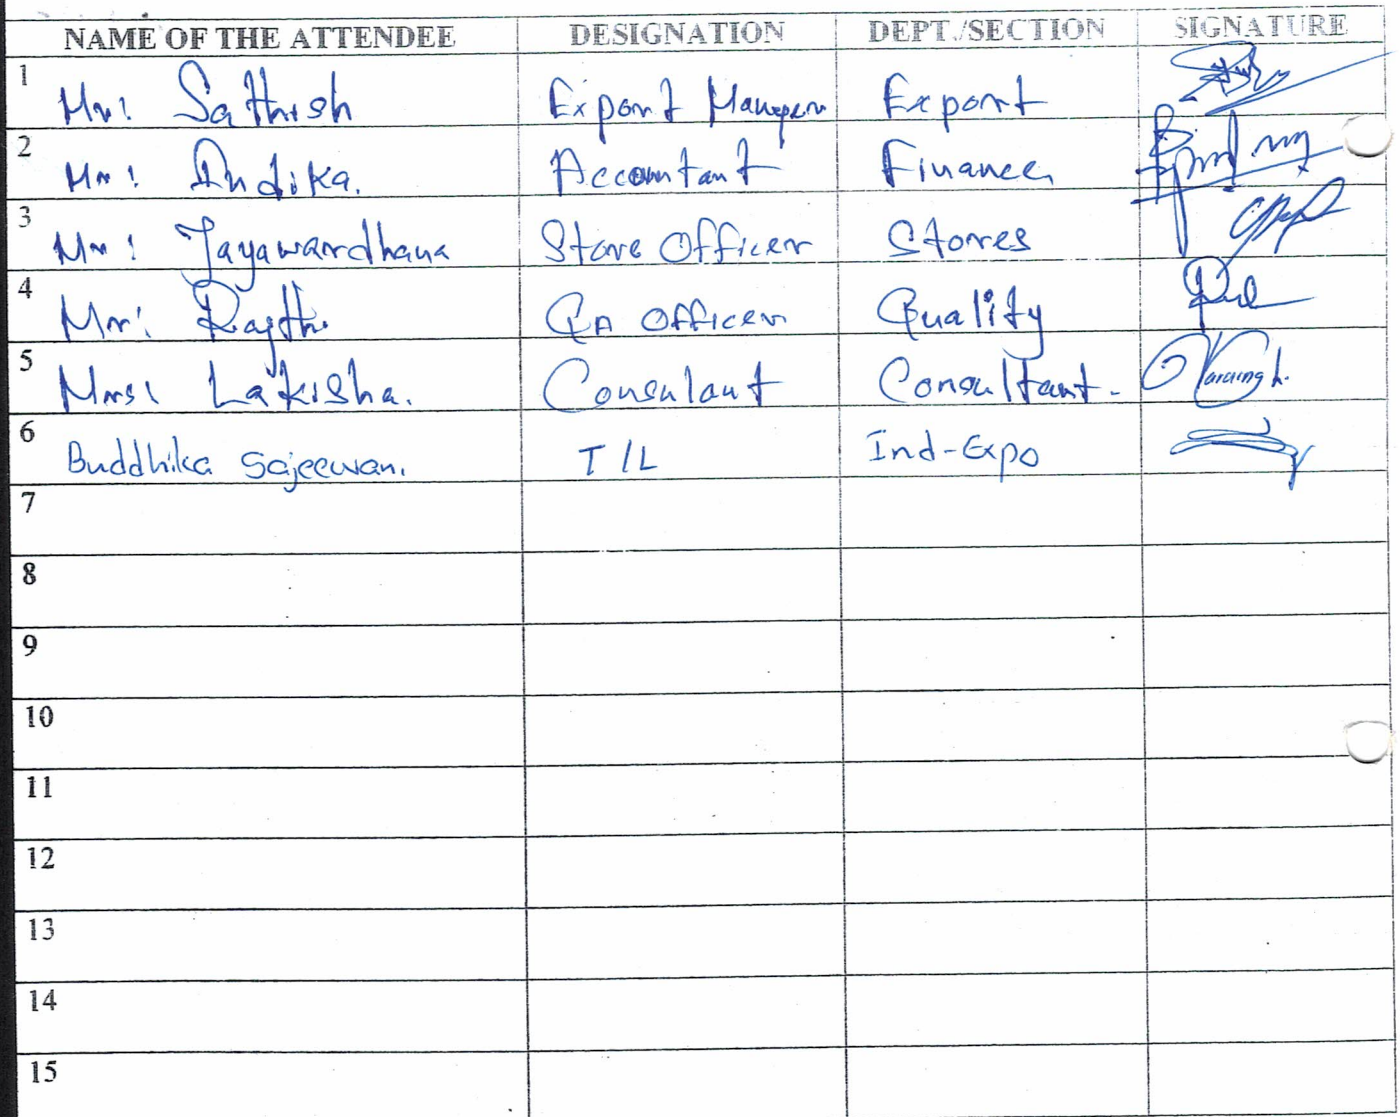 NAME OF THE ATTENDEE DESIGNATION DEPT./SECTION SIGNATURE
1 Mr: Sathish Export Manager Export
2 Mr: Indika. Accountant Finance
3 Mr: Jayawardhana Store Officer Stores
4 Mr: Rajth QA Officer Quality
5 Mrs: Lakisha. Consulant Consultant.
6 Buddhika Sajeewan. T/L Ind-Expo
7
8
9
10
11
12
13
14
15